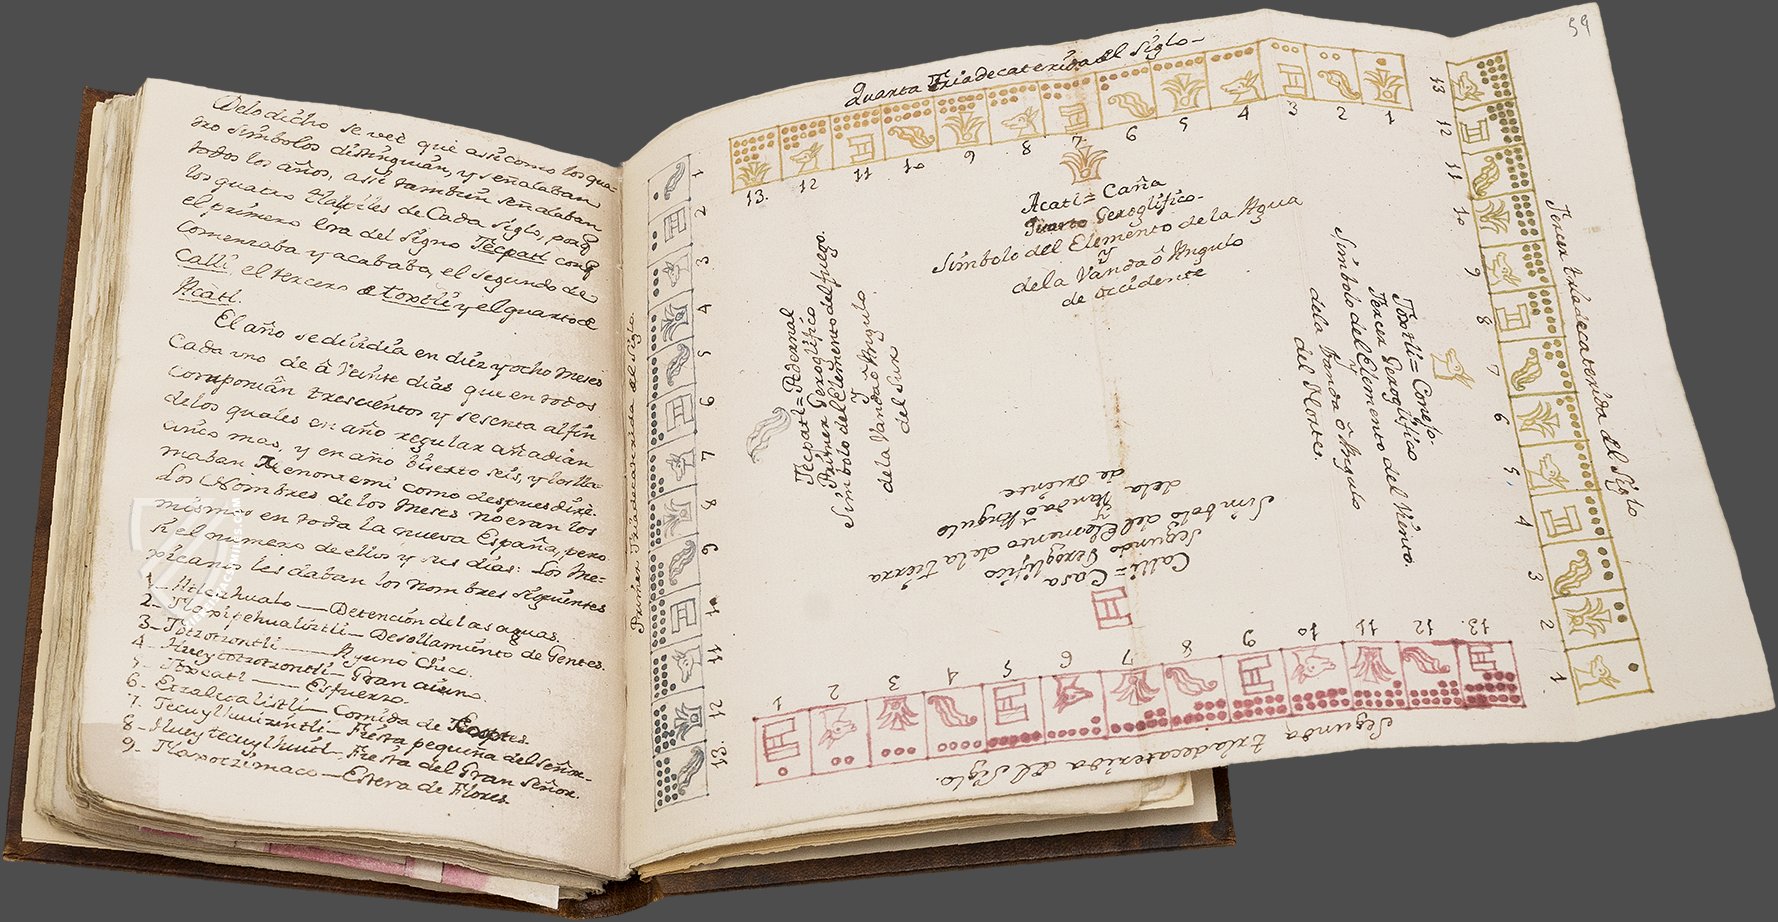 De lo dicho se veè que assi como los qua-
tro simbolos distinguian, y señalaban
todos los años, assi tambien señalaban
los quatro Tlalpiles de Cada Siglo, porq̃
el primero era del signo Tecpatl conq̃
Comenzaba y acababa, el segundo de
Calli el tercero de toxtli y el quarto de
Acatl.
El año se dividia en diez y ocho meses
Cada uno de à Veinte dias que en todos
componian trescientos y sesenta al fin
de los quales en año regular añadian
cinco mas, y en año bisexto seis, y los lla-
maban Nenontemi como despues dire.
Los Nombres de los Meses no eran los
mismos en toda la nueva España, pero
si el numero de ellos y sus dias: Los Me-
xicanos les daban los nombres siguientes
1_ Atlcahualo — Detencion de las aguas.
2_ Tlaxipehualiztli — Desollamiento de Gentes.
3_ Tozoztontli — Ayuno Chico.
4_ Hueytozoztontli — Gran ayuno.
5_ Toxcatl — Esfuerzo.
6_ Etzalcualistli — Comida de
7_ Tecuylhuizintli — Fiesta pequeña del Señor.
8_ Hueytecuylhuitl — Fiesta del Gran Señor.
9_ Tlaxochimaco — Estera de Flores
59
Quarta Triadecaterida del Siglo
13. 12 11 10 9 8 7 6 5 4 3 2 1
Acatl = Caña
Quarto Geroglifico
Simbolo del Elemento de la Agua
y
de la Vanda ô Angulo
de occidente
Primer Triadecaterida del Siglo.
1 2 3 4 5 6 7 8 9 10 11 12 13.
Tecpatl = Pedernal
Primer Geroglifico
Simbolo del Elemento del fuego.
y
de la Vanda ô Angulo
del Sur
Tercer triadecaterida del Siglo
13 12 11 10 9 8 7 6 5. 4 3 2 1
Toxtli = Conejo.
Tercer Geroglifico
Simbolo del Elemento del Viento.
y
de la banda ô Angulo
del Norte.
Segunda triadecaterida del Siglo.
1 2 3 4 5 6 7 8 9 10 11 12 13.
Calli = Casa
Segundo Geroglifico
Simbolo del Elemento de la tierra
y
de la Vanda ô Angulo
de oriente